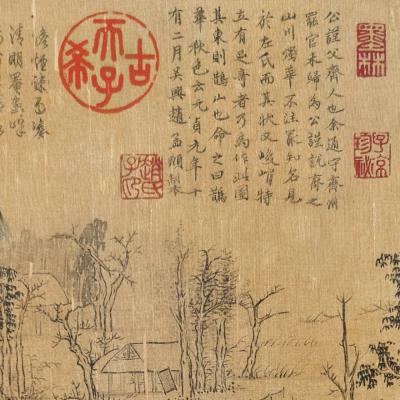 公謹父齊人也余通守齊州
罷官來歸為公謹說齊之
山川獨華不注最知名見
於左氏而其狀又峻峭特
立有足奇者乃為作此圖
其東則鵲山也命之曰鵲
華秋色云元貞元年十
有二月吳興趙孟頫製
古希天子